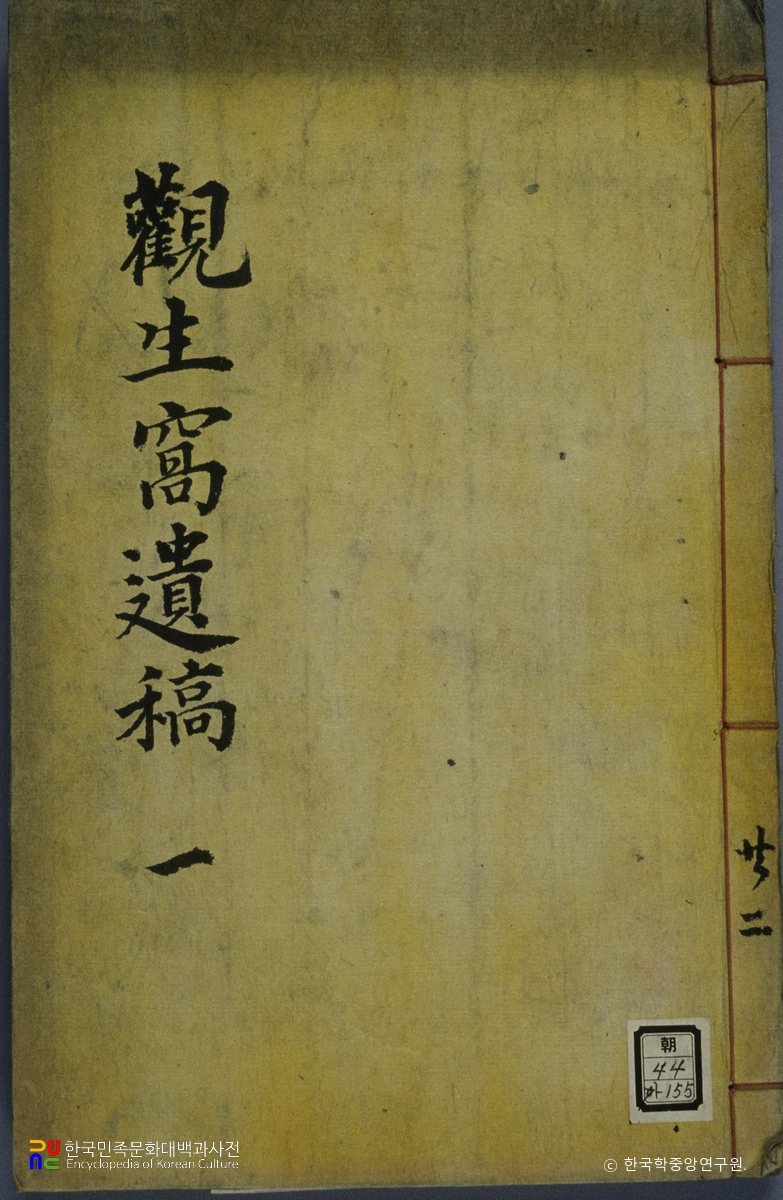 觀生窩遺稿 一
共二
朝
44
가155
한국민족문화대백과사전
Encyclopedia of Korean Culture
ⓒ 한국학중앙연구원.